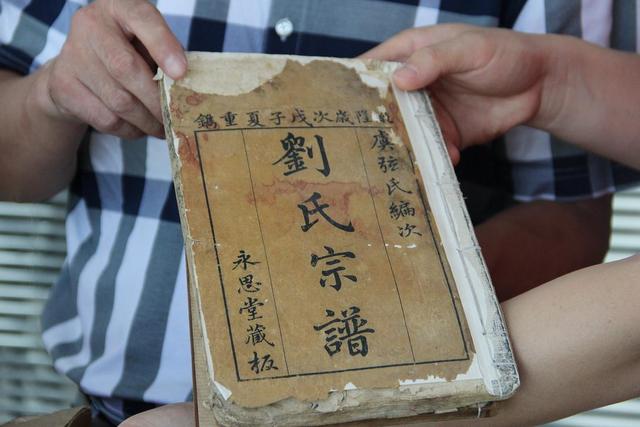 乾隆歲次戊子夏重鐫
虞弦氏編次
劉氏宗譜
永思堂藏板